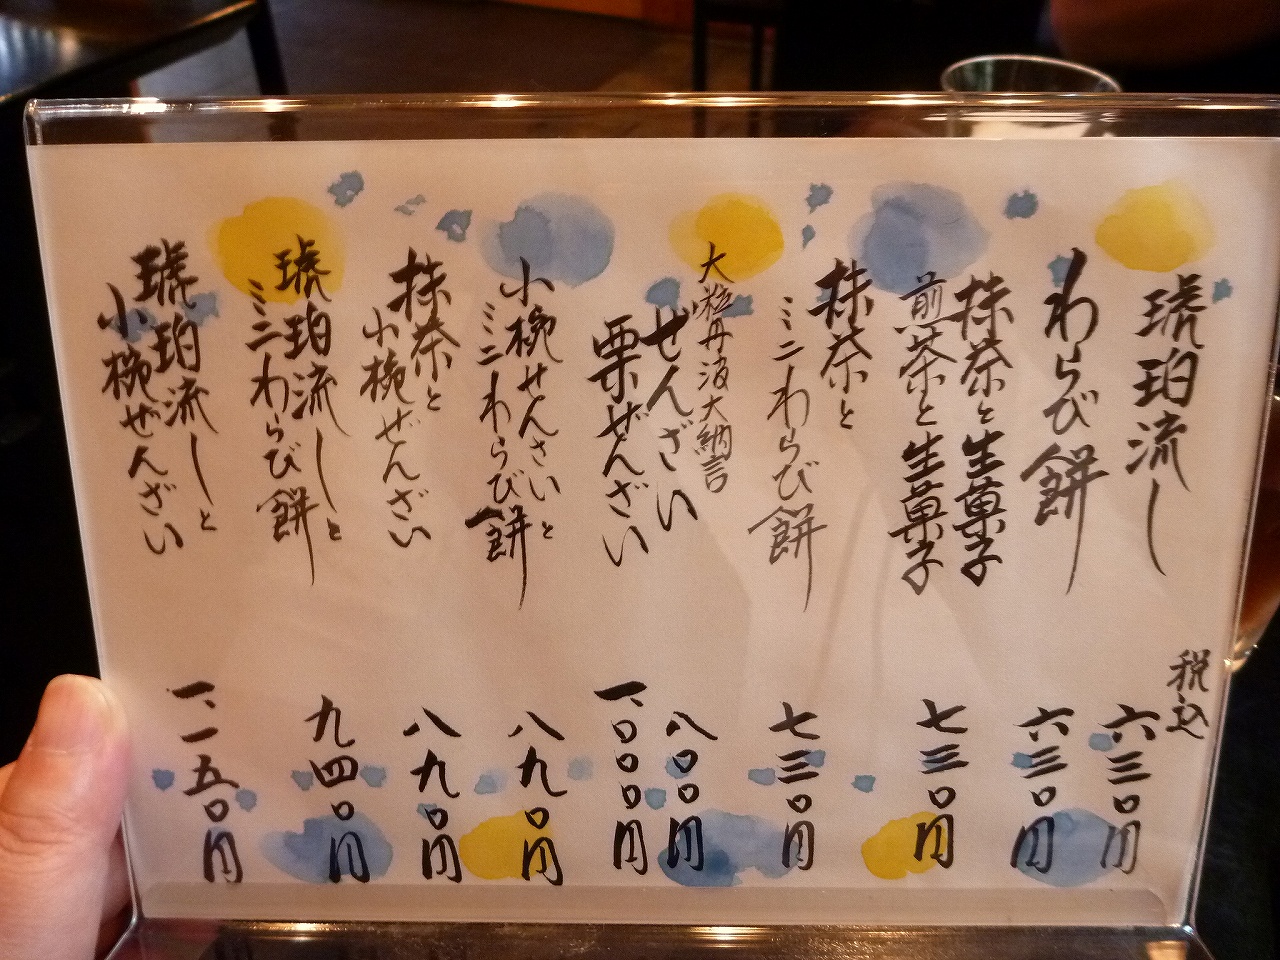 琥珀流し
税込
六三〇円
わらび餅
六三〇円
抹茶と生菓子
煎茶と生菓子
七三〇円
抹茶と
ミニわらび餅
七三〇円
大粒丹波大納言
ぜんざい
八〇〇円
栗ぜんざい
一、〇〇〇円
小椀ぜんざいと
ミニわらび餅
八九〇円
抹茶と
小椀ぜんざい
八九〇円
琥珀流しと
ミニわらび餅
九四〇円
琥珀流しと
小椀ぜんざい
一、一五〇円